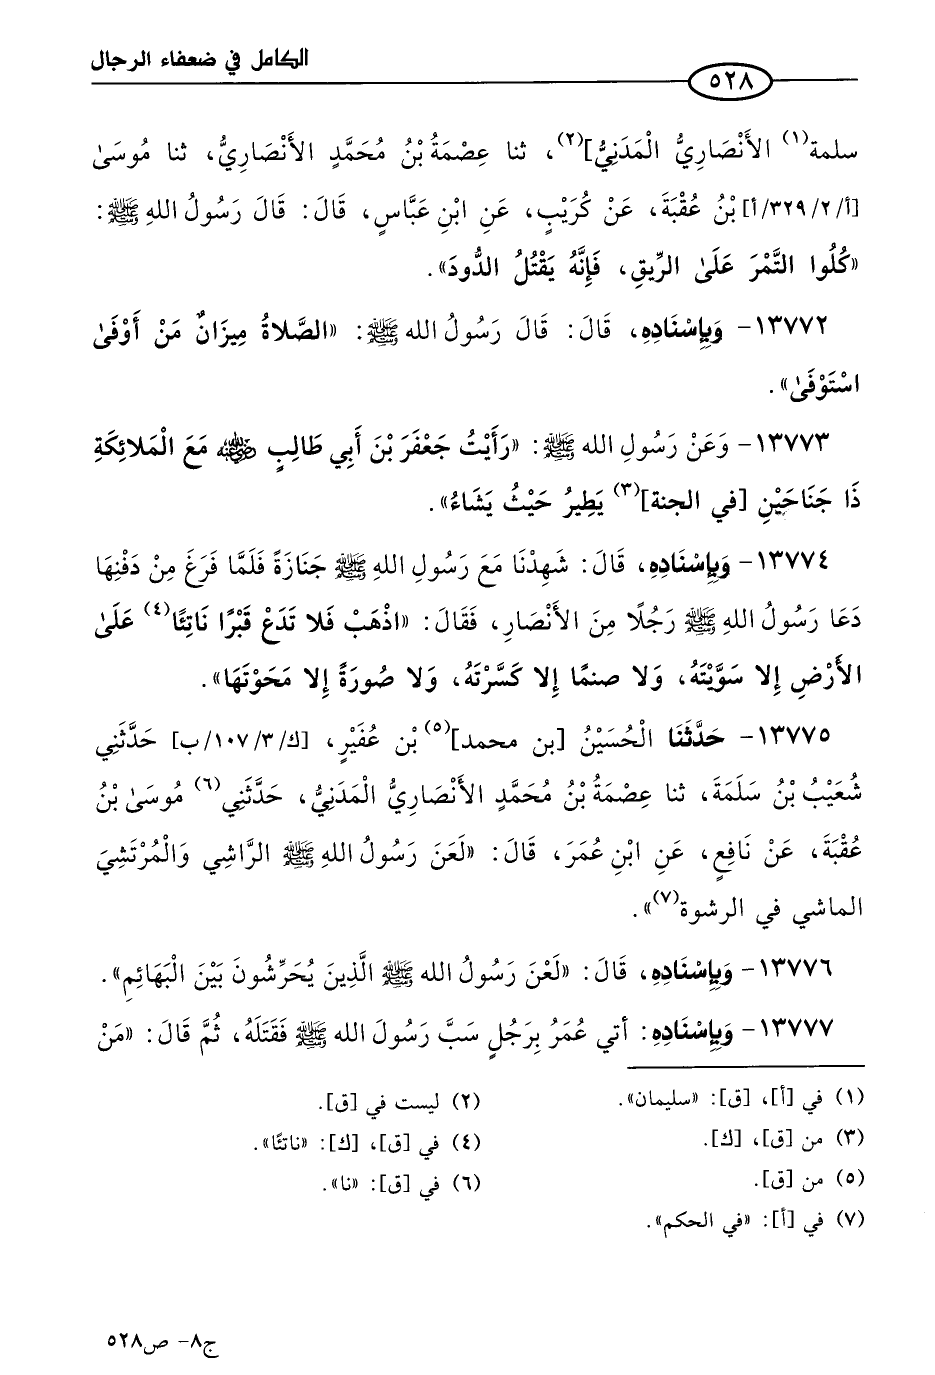 الكامل في ضعفاء الرجال
٥٢٨
سلمة(١) الأَنْصَارِيُّ الْمَدَنِيُّ](٢)، ثنا عِصْمَةُ بْنُ مُحَمَّدٍ الأَنْصَارِيُّ، ثنا مُوسَىٰ
[أ/٣٢٩/٢/أ] بْنُ عُقْبَةَ، عَنْ كُرَيْبٍ، عَنِ ابْنِ عَبَّاسٍ، قَالَ: قَالَ رَسُولُ اللهِ ﷺ:
«كُلُوا التَّمْرَ عَلَىٰ الرِّيقِ، فَإِنَّهُ يَقْتُلُ الدُّودَ».
١٣٧٧٢- وَبِإِسْنَادِهِ، قَالَ: قَالَ رَسُولُ الله ﷺ: «الصَّلاةُ مِيزَانٌ مَنْ أَوْفَىٰ
اسْتَوْفَىٰ».
١٣٧٧٣- وَعَنْ رَسُولِ الله ﷺ: «رَأَيْتُ جَعْفَرَ بْنَ أَبِي طَالِبٍ ﵁ مَعَ الْمَلائِكَةِ
ذَا جَنَاحَيْنِ [في الجنة](٣) يَطِيرُ حَيْثُ يَشَاءُ».
١٣٧٧٤- وَبِإِسْنَادِهِ، قَالَ: شَهِدْنَا مَعَ رَسُولِ اللهِ ﷺ جَنَازَةً فَلَمَّا فَرَغَ مِنْ دَفْنِهَا
دَعَا رَسُولُ اللهِ ﷺ رَجُلًا مِنَ الأَنْصَارِ، فَقَالَ: «اذْهَبْ فَلا تَدَعْ قَبْرًا نَاتِئًا(٤) عَلَىٰ
الأَرْضِ إِلا سَوَّيْتَهُ، وَلا صنمًا إِلا كَسَّرْتَهُ، وَلا صُورَةً إِلا مَحَوْتَهَا».
١٣٧٧٥- حَدَّثَنَا الْحُسَيْنُ [بن محمد](٥) بْن عُفَيْرٍ، [ك/١٠٧/٣/ب] حَدَّثَنِي
شُعَيْبُ بْنُ سَلَمَةَ، ثنا عِصْمَةُ بْنُ مُحَمَّدٍ الأَنْصَارِيُّ الْمَدَنِيُّ، حَدَّثَنِي(٦) مُوسَىٰ بْنُ
عُقْبَةَ، عَنْ نَافِعٍ، عَنِ ابْنِ عُمَرَ، قَالَ: «لَعَنَ رَسُولُ اللهِ ﷺ الرَّاشِي وَالْمُرْتَشِيَ
الماشي في الرشوة(٧)».
١٣٧٧٦- وَبِإِسْنَادِهِ، قَالَ: «لَعْنَ رَسُولُ الله ﷺ الَّذِينَ يُحَرِّشُونَ بَيْنَ الْبَهَائِمِ».
١٣٧٧٧- وَبِإِسْنَادِهِ: أتي عُمَرُ بِرَجُلٍ سَبَّ رَسُولَ الله ﷺ فَقَتَلَهُ، ثُمَّ قَالَ: «مَنْ
(١) في [أ]، [ق]: «سليمان». (٢) ليست في [ق].
(٣) من [ق]، [ك]. (٤) في [ق]، [ك]: «ناتئًا».
(٥) من [ق]. (٦) في [ق]: «نا».
(٧) في [أ]: «في الحكم».
ج٨- ص٥٢٨